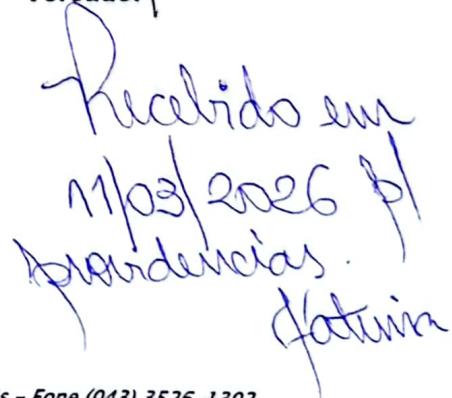 Recebido em
11/03/2026 p/
providencias.
– Fone (043) 3526-1302